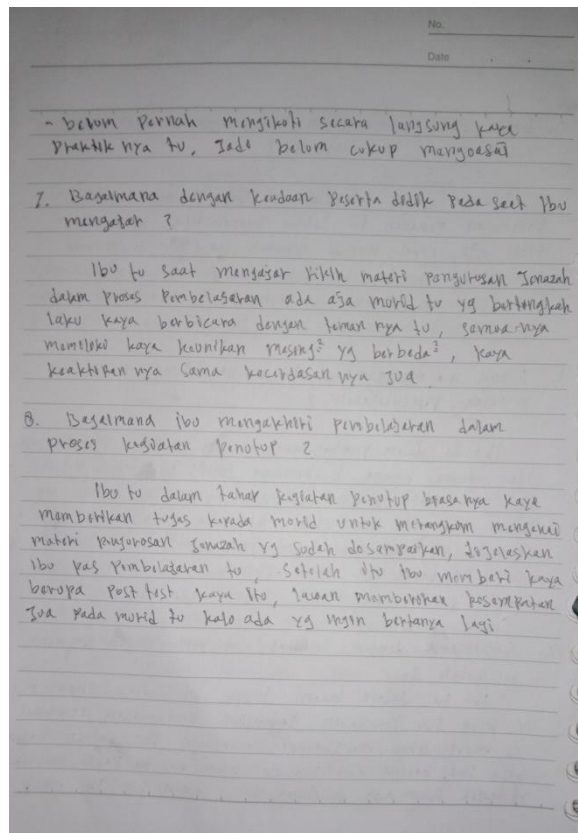 No.
Date
- belum pernah mengikuti secara langsung kaya
praktik nya tu, Jadi belum cukup menguasai
7. Bagaimana dengan keadaan Peserta didik pada saat Ibu
mengajar ?
Ibu tu saat mengajar Fikih materi pengurusan Jenazah
dalam proses Pembelajaran ada aja murid tu yg bertingkah
laku kaya berbicara dengan teman nya tu, semua nya
memiliki kaya keunikan masing² yg berbeda², kaya
keaktifan nya sama kecerdasan nya Jua.
8. Bagaimana ibu mengakhiri pembelajaran dalam
proses kegiatan penutup ?
Ibu tu dalam tahap kegiatan penutup biasa nya kaya
memberikan tugas kepada murid untuk merangkum mengenai
materi pengurusan Jenazah yg sudah disampaikan, dijelaskan
Ibu pas Pembelajaran tu, setelah itu ibu memberi kaya
berupa Post test kaya itu, lawan memberikan kesempatan
Jua pada murid tu kalo ada yg ingin bertanya lagi